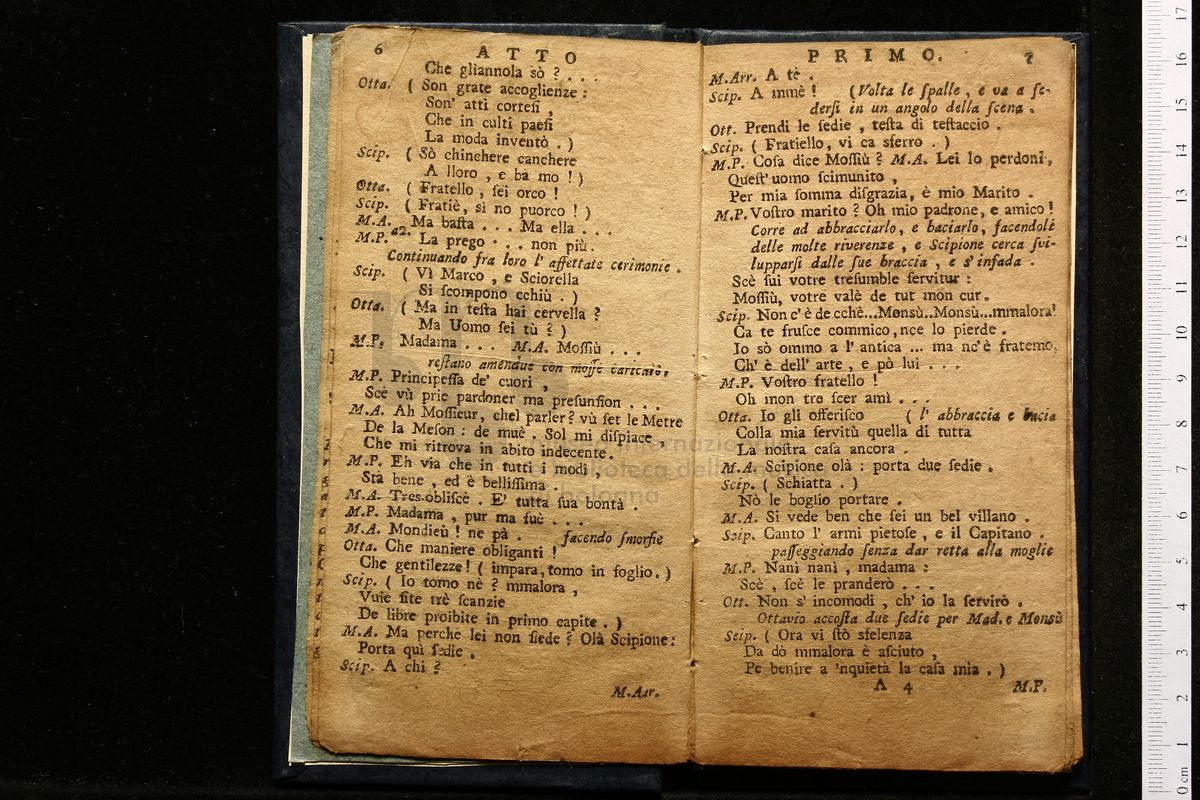 6 ATTO
Che gliannola sò ? . . .
Otta. ( Son grate accoglienze :
Son' atti cortesi ,
Che in culti paesi
La moda inventò . )
Scip. ( Sò chinchere canchere
A lloro , e ba mo ! )
Otta. ( Fratello , sei orco !
Scip. ( Fratiè, sì no puorco ! )
M.A. Ma basta . . . Ma ella . . .
M.P. a2. La prego . . . non più.
Continuando fra loro l' affettate cerimonie .
Scip. ( Vì Marco , e Sciorella
Si scompono cchiù . )
Otta. ( Ma in testa hai cervella ?
Ma Uomo sei tù ? )
M.P. Madama . . . M.A. Mossiù . . .
restano amendue con mosse caricate,
M.P. Principessa de' cuori ,
Scè vù prie pardoner ma presunsion . . .
M.A. Ah Mossieur, chel parler ? vù set le Metre
De la Meson : de muè . Sol mi dispiace ,
Che mi ritrova in abito indecente.
M.P. Eh via che in tutti i modi ,
Stà bene , ed è bellissima .
M.A. Tres-obliscè . E' tutta sua bontà .
M.P. Madama , pur ma suè . . .
M.A. Mondieù ! ne pà . facendo smorfie
Otta. Che maniere obliganti !
Che gentilezze! ( impara, tomo in foglio. )
Scip. ( Io tomo nè ? mmalora ,
Vuie site trè scanzie
De libre proibite in primo capite . )
M.A. Ma perchè lei non siede ? Olà Scipione:
Porta quì sedie .
Scip. A chi ?
M.Arr.
PRIMO. 7
M.Arr. A te .
Scip. A mmè ! (Volta le spalle , e va a se-
dersi in un angolo della scena .
Ott. Prendi le sedie , testa di testaccio .
Scip. ( Fratiello, vi ca sferro . )
M.P. Cosa dice Mossiù ? M.A. Lei lo perdoni,
Quest' uomo scimunito ,
Per mia somma disgrazia, è mio Marito .
M.P. Vostro marito ? Oh mio padrone, e amico !
Corre ad abbracciarlo, e baciarlo, facendoli
delle molte riverenze , e Scipione cerca svi-
lupparsi dalle sue braccia , e s' infada .
Scè sui votre tresumble servitur :
Mossiù, votre valè de tut mon cur.
Scip. Non c' è de cchè...Monsù..Monsù...mmalora!
Ca te frusce commico, nce lo pierde .
Io sò ommo a l' antica ... ma nc' è fratemo,
Ch' è dell' arte , e pò lui . . .
M.P. Vostro fratello !
Oh mon tre scer amì . . .
Otta. Io gli offerisco ( l' abbraccia e bacia
Colla mia servitù quella di tutta
La nostra casa ancora .
M.A. Scipione olà : porta due sedie .
Scip. ( Schiatta . )
Nò le boglio portare .
M.A. Si vede ben che sei un bel villano .
Scip. Canto l' armi pietose , e il Capitano .
passeggiando senza dar retta alla moglie
M.P. Nanì nanì , madama :
Scè , scè le pranderò . . .
Ott. Non s' incomodi , ch' io la servirò .
Ottavio accosta due sedie per Mad. e Monsù
Scip. ( Ora vi stò sfelenza
Da dò mmalora è asciuto ,
Pe benire a 'nquietà la casa mia . )
A 4 M.P.